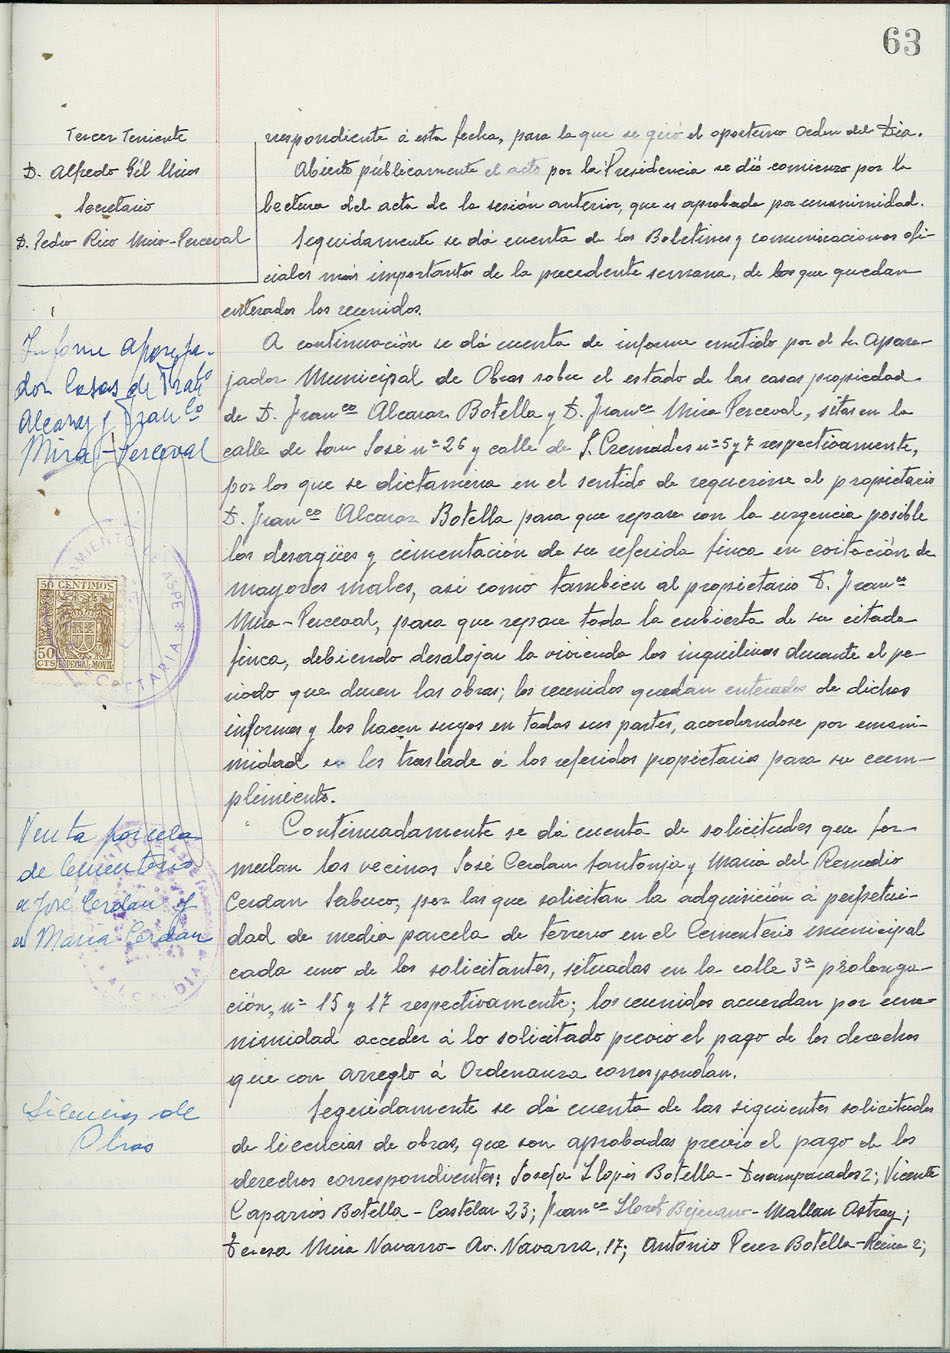 63
Tercer Teniente
D. Alfredo Gil Mirós
Secretario
D. Pedro Rico Mira-Perceval
rrespondiente á esta fecha, para la que se giró el oportuno Orden del Día.
Abierto públicamente el acto por la Presidencia se dió comienzo por la
lectura del acta de la sesión anterior, que es aprobada por unanimidad.
Seguidamente se dá cuenta de los Boletines y comunicaciones ofi-
ciales más importantes de la precedente semana, de los que quedan
enterados los reunidos.
Informe Apareja-
dor Casas de Franco
Alcaraz y Franco
Mira-Perceval
A continuación se dá cuenta de informe emitido por el Sr. Apare-
jador Municipal de Obras sobre el estado de las casas propiedad
de D. Franco Alcaraz Botella y D. Franco Mira Perceval, sitas en la
calle de San José nº 26 y calle de S. Cremades nº 5 y 7 respectivamente,
por los que se dictamina en el sentido de requerirse al propietario
D. Franco Alcaraz Botella para que repare con la urgencia posible
los desagües y cimentación de su referida finca en evitación de
mayores males, así como tambien al propietario D. Franco
Mira-Perceval, para que repare toda la cubierta de su citada
finca, debiendo desalojar la vivienda los inquilinos durante el pe-
riodo que duren las obras; los reunidos quedan enterados de dichos
informes y los hacen suyos en todas sus partes, acordandose por unani-
midad se les traslade á los referidos propietarios para su cum-
plimiento.
AYUNTAMIENTO DE ASPE
SECRETARIA
50 CENTIMOS
50
CTS ESPECIAL MOVIL
Venta parcela
de Cementerio
a José Cerdan y
a Maria Cerdan
ALCALDIA
Continuadamente se dá cuenta de solicitudes que for-
mulan los vecinos José Cerdan Santonja y Maria del Remedio
Cerdan Sabuco, por las que solicitan la adquisición á perpetui-
dad de media parcela de terreno en el Cementerio municipal
cada uno de los solicitantes, situadas en la calle 3ª prolonga-
ción, nº 15 y 17 respectivamente; los reunidos acuerdan por una-
nimidad acceder á lo solicitado previo el pago de los derechos
que con arreglo á Ordenanza correspondan.
Licencias de
Obras
Seguidamente se dá cuenta de las siguientes solicitudes
de licencias de obras, que son aprobadas previo el pago de los
derechos correspondientes: Josefa Llopis Botella - Desamparados 2; Vicente
Caparrós Botella - Castelar 23; Franco Lloret Bejerano - Mallan Astray;
Teresa Mira Navarro - Av. Navarra, 17; Antonio Perez Botella - Reina 2;